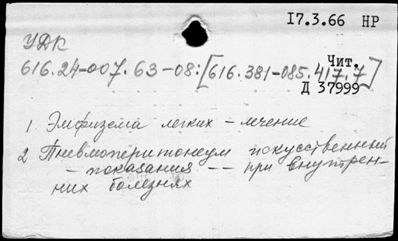 17.3.66 НР
УДК
616.24-007.63-08:[616.381-085.417.7]
Чит.
Д 37999
1 Эмфизема легких - лечение
2 Пневмоперитонеум искусственный
- показания -- при внутрен-
них болезнях